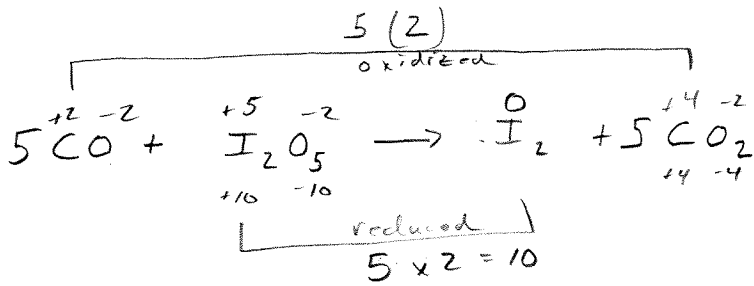 5 (2)
oxidized
+2 -2 +5 -2 0 +4 -2
5CO + I₂O₅ → I₂ + 5CO₂
+10 -10 +4 -4
reduced
5 x 2 = 10